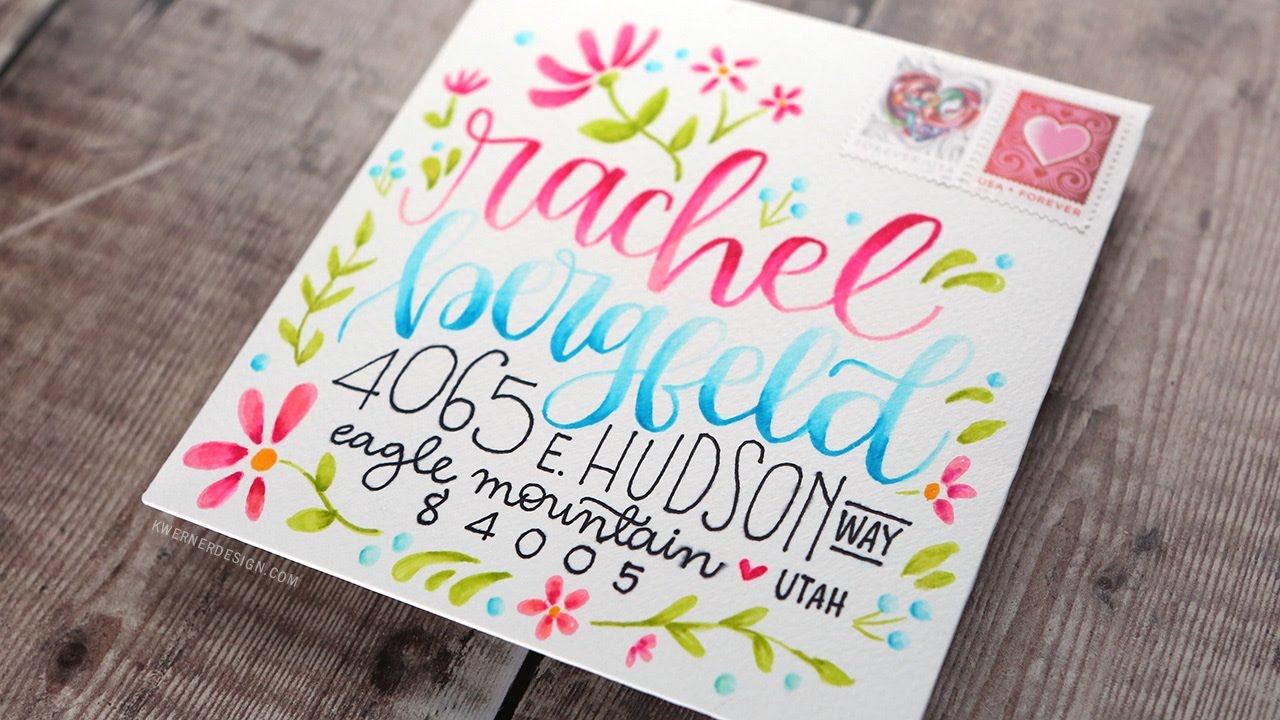 FOREVER USA
USA • FOREVER
rachel
bergfeld
4065 E. HUDSON WAY
eagle mountain ♥ UTAH
84005
KWERNERDESIGN.COM